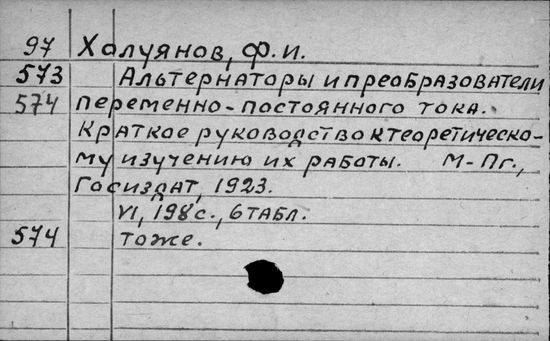 97 Халуянов, Ф. И.
573 Альтернаторы и преобразователи
574 переменно-постоянного тока.
Краткое руководство к теоретическо-
му изучению их работы. М-Пг.,
Госиздат, 1923.
VI, 198 с., 6 табл.
574 Тоже.